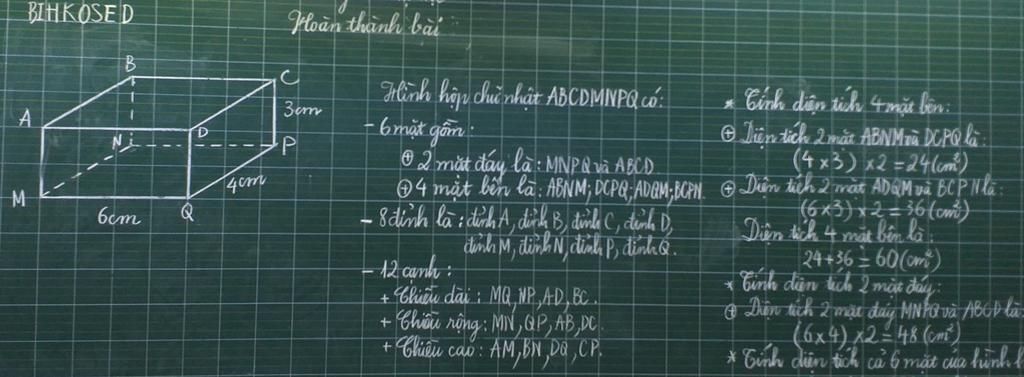 BIHKOSED
Hoàn thành bài:
B
C
A
D
3cm
N
P
4cm
M
6cm
Q
Hình hộp chữ nhật ABCDMNPQ có:
- 6 mặt gồm:
⊕ 2 mặt đáy là: MNPQ và ABCD
⊕ 4 mặt bên là: ABNM; DCPQ; ADQM; BCPN.
- 8 đỉnh là: đỉnh A, đỉnh B, đỉnh C, đỉnh D,
đỉnh M, đỉnh N, đỉnh P, đỉnh Q.
- 12 cạnh:
+ Chiều dài: MQ, NP, AD, BC.
+ Chiều rộng: MN, QP, AB, DC.
+ Chiều cao: AM, BN, DQ, CP.
* Tính diện tích 4 mặt bên:
⊕ Diện tích 2 mặt ABNM và DCPQ là:
(4 x 3) x 2 = 24 (cm²)
⊕ Diện tích 2 mặt ADQM và BCPN là:
(6 x 3) x 2 = 36 (cm²)
Diện tích 4 mặt bên là:
24 + 36 = 60 (cm²)
* Tính diện tích 2 mặt đáy:
⊕ Diện tích 2 mặt đáy MNPQ và ABCD là:
(6 x 4) x 2 = 48 (cm²)
* Tính diện tích cả 6 mặt của hình h